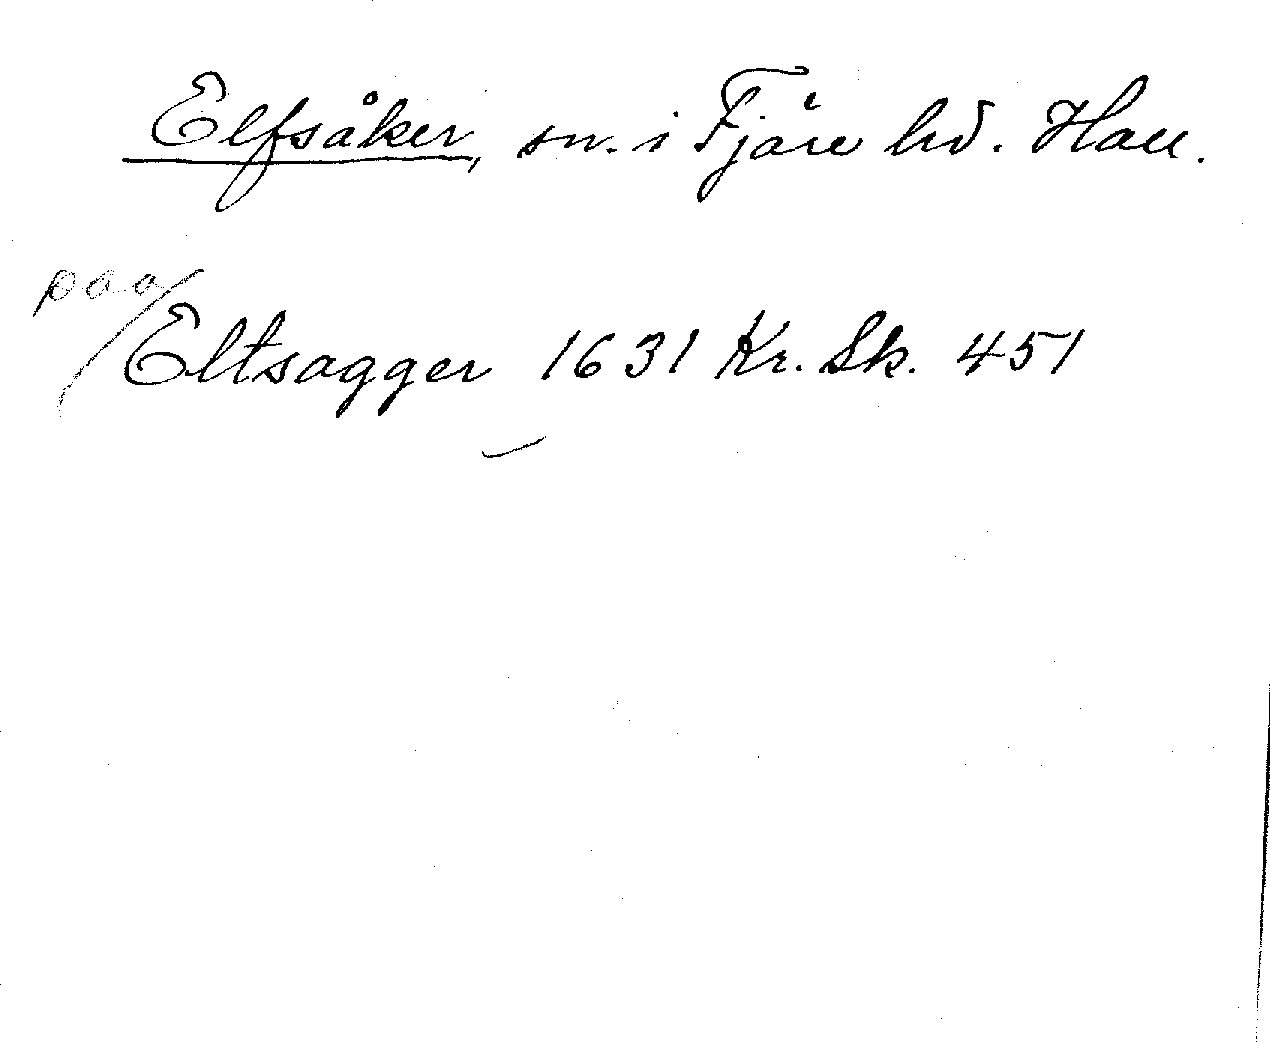 Elfsåker, sn. i Fjäre hd. Hall.
paa/
Eltsagger 1631 Kr. Sk. 451